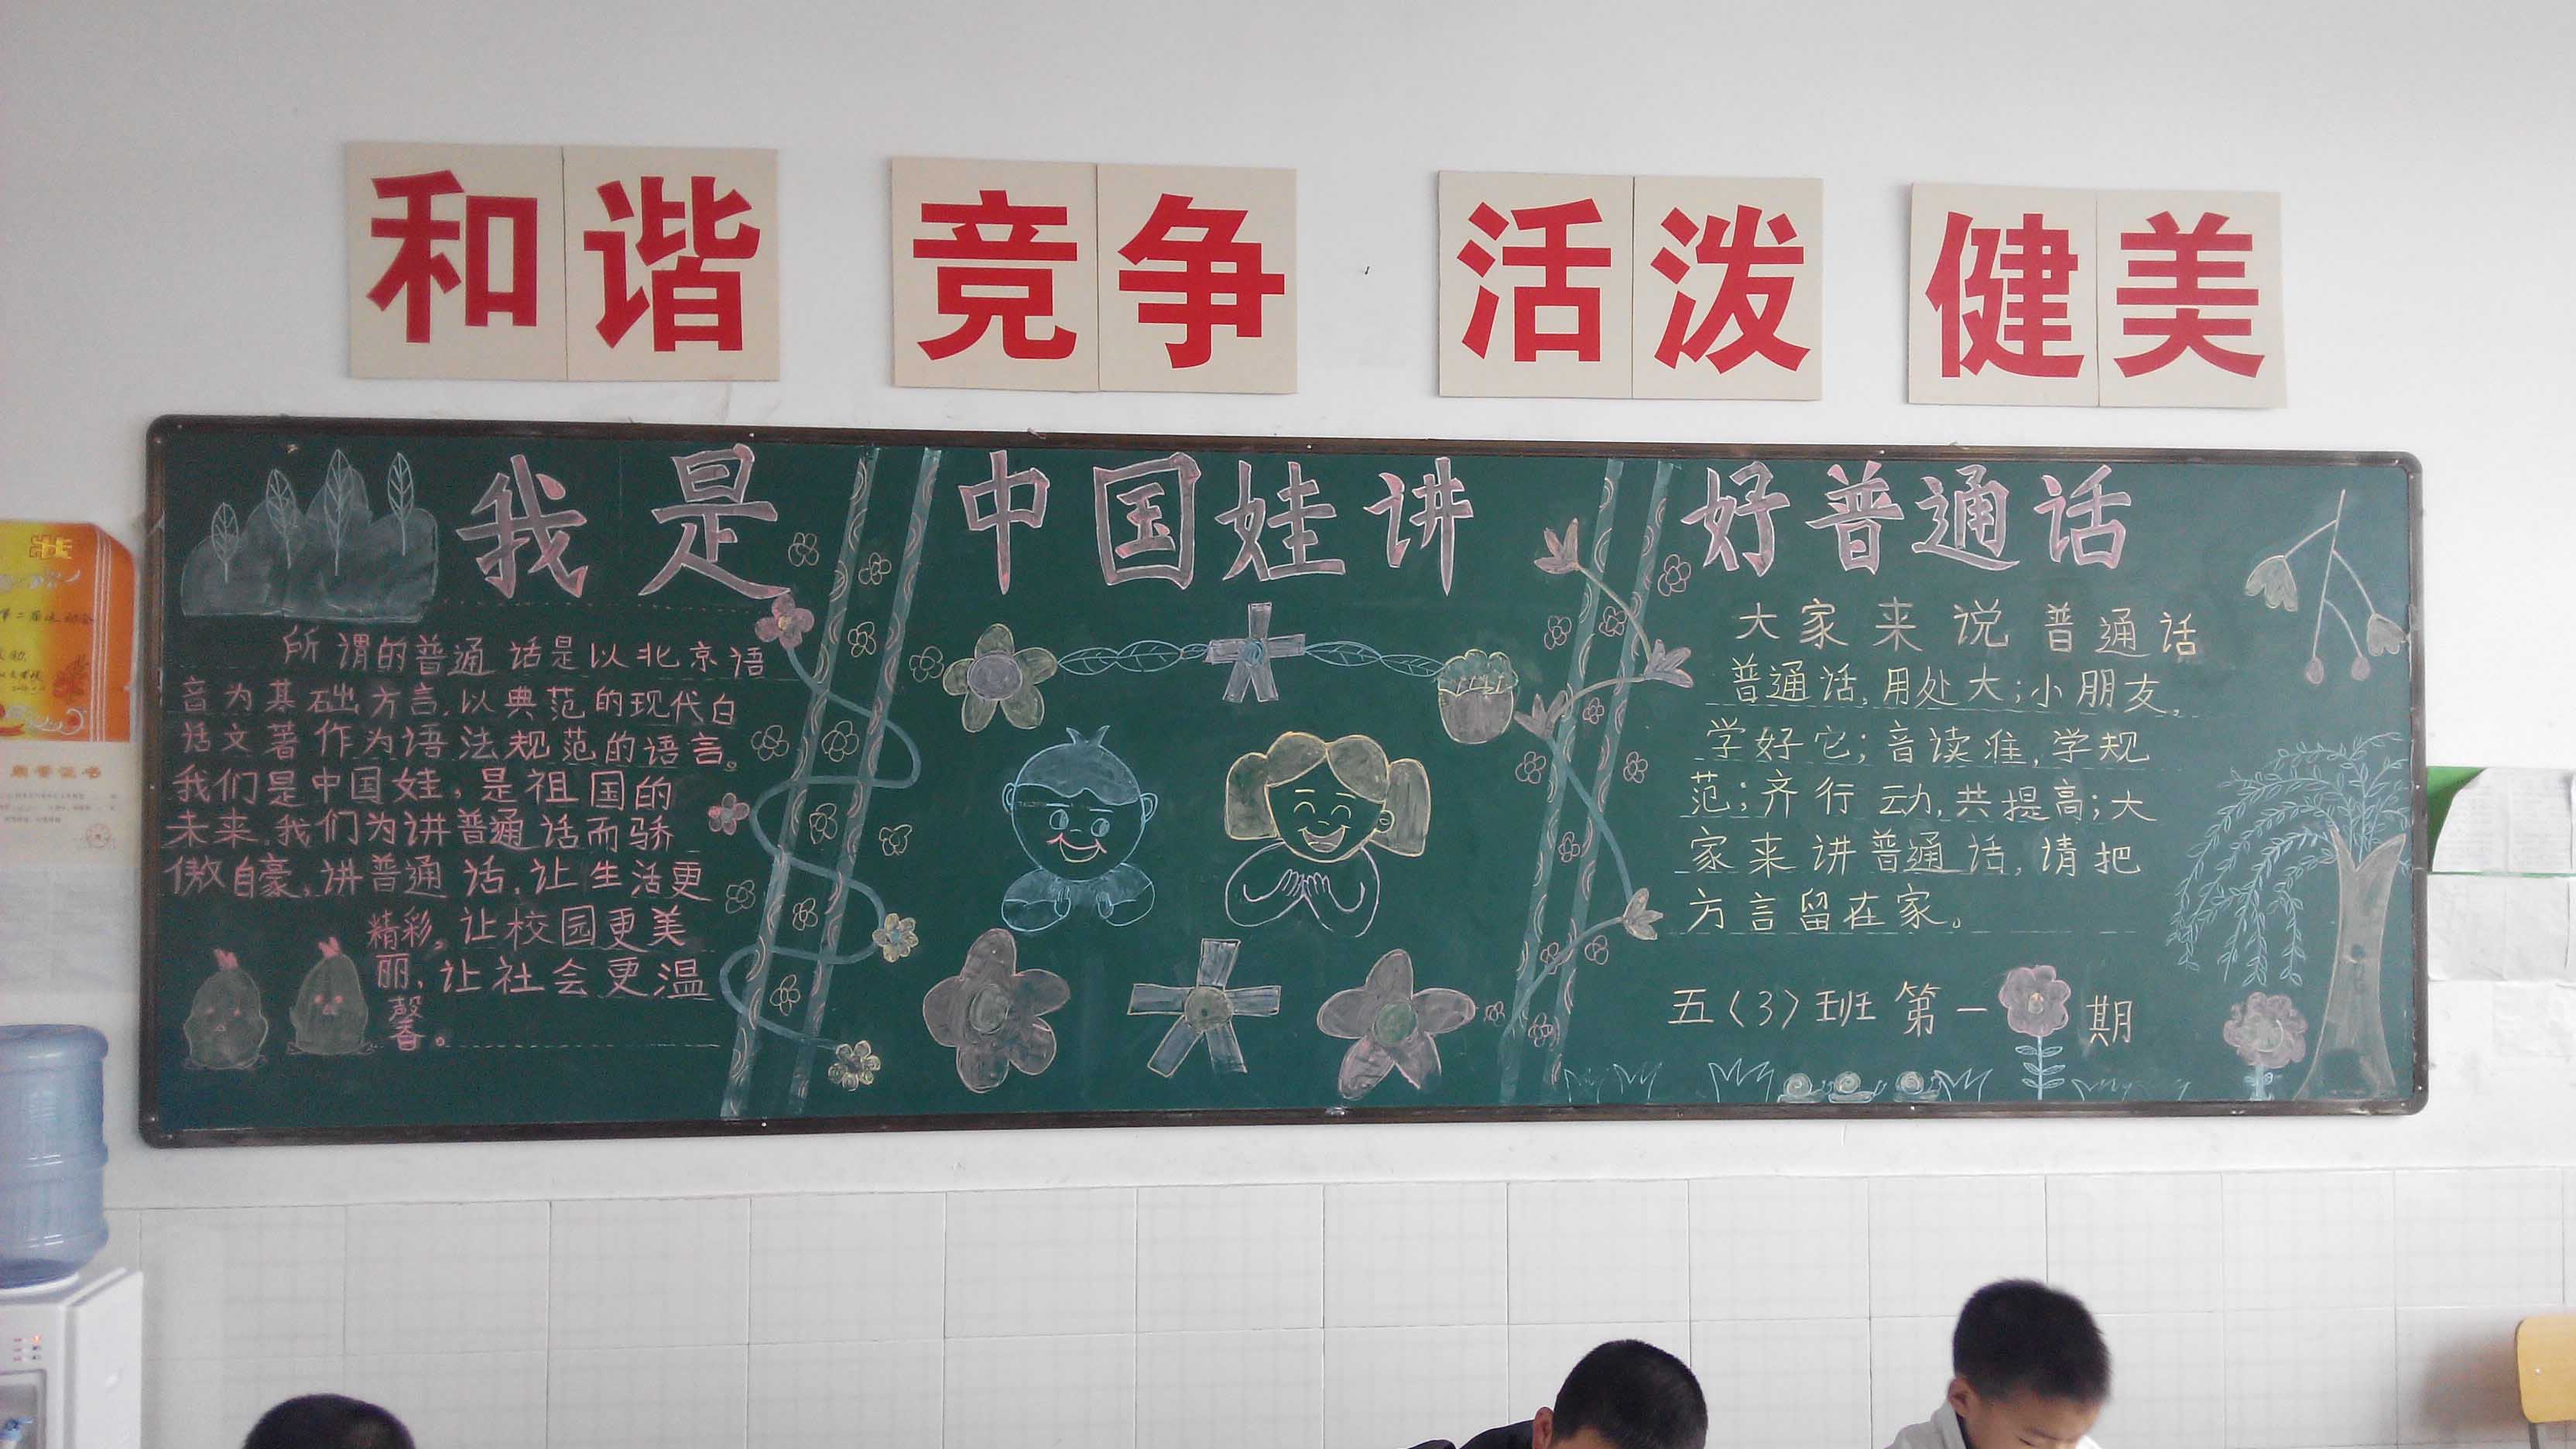 和谐 竞争 活泼 健美
我是中国娃讲好普通话
所谓的普通话是以北京语
音为基础方言,以典范的现代白
话文著作为语法规范的语言。
我们是中国娃,是祖国的
未来,我们为讲普通话而骄
傲自豪,讲普通话,让生活更
精彩,让校园更美
丽,让社会更温
馨。
大家来说普通话
普通话,用处大;小朋友,
学好它;音读准,学规
范;齐行动,共提高;大
家来讲普通话,请把
方言留在家。
五(3)班第一期